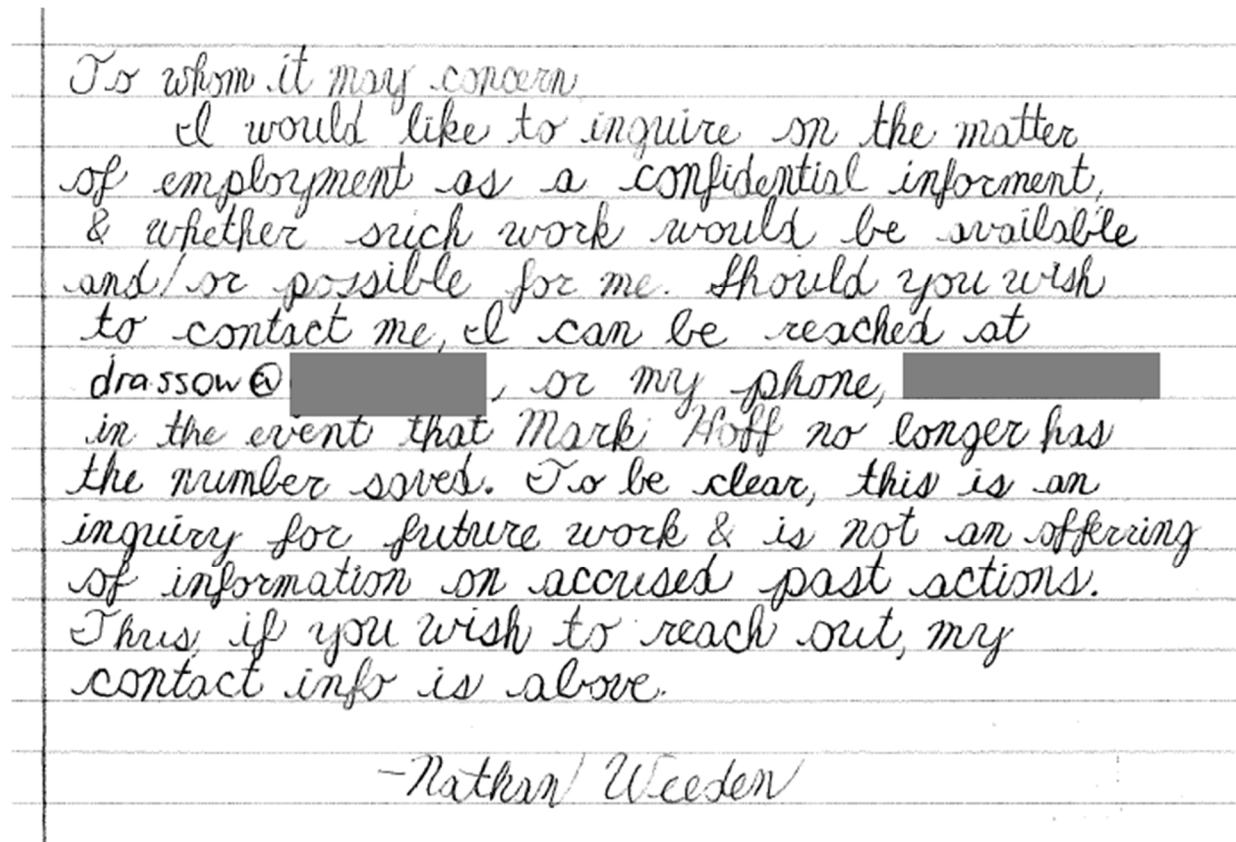 To whom it may concern
I would like to inquire on the matter
of employment as a confidential informent,
& whether such work would be available
and/or possible for me. Should you wish
to contact me, I can be reached at
drassow@ , or my phone,
in the event that Mark Hoff no longer has
the number saved. To be clear, this is an
inquiry for future work & is not an offerring
of information on accused past actions.
Thus, if you wish to reach out, my
contact info is above.
-Nathan Weeden